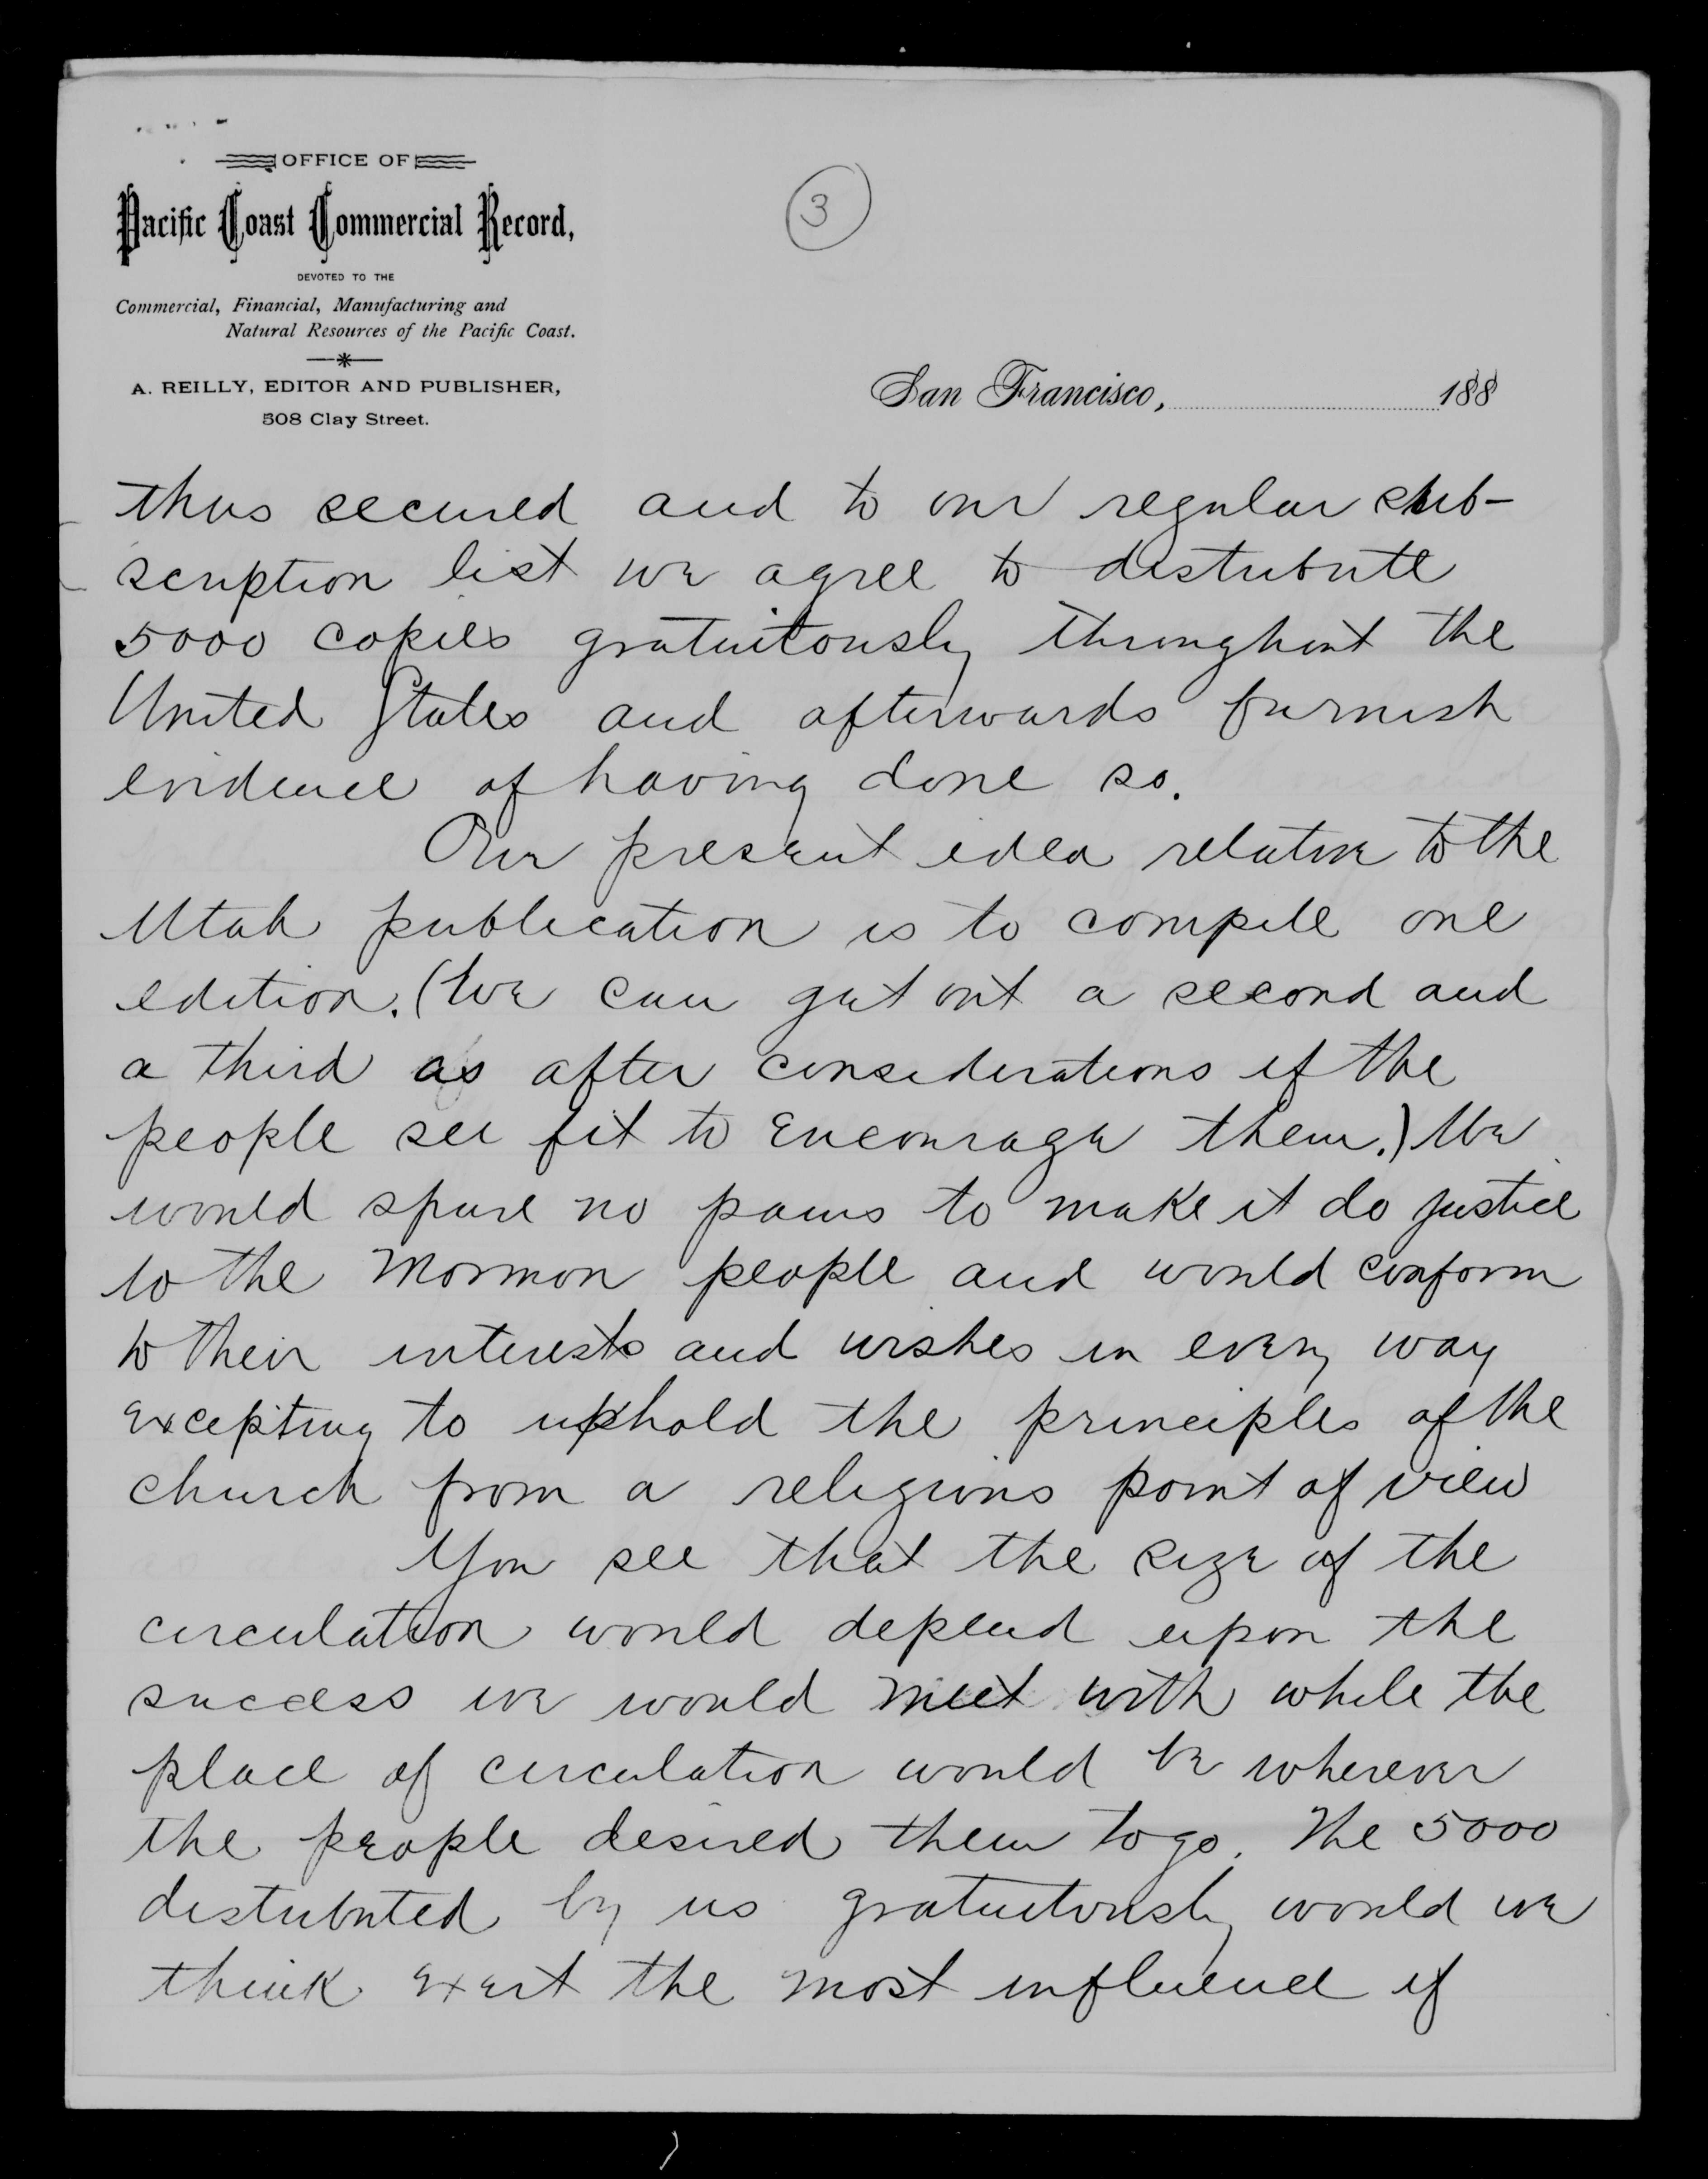 OFFICE OF
Pacific Coast Commercial Record,
DEVOTED TO THE
Commercial, Financial, Manufacturing and
Natural Resources of the Pacific Coast.
A. REILLY, EDITOR AND PUBLISHER,
508 Clay Street.
3
San Francisco, 188
thus secured and to our regular sub-
scription list we agree to distribute
5000 copies gratuitously throughout the
United States and afterwards furnish
evidence of having done so.
Our present idea relative to the
Utah publication is to compile one
edition. (We can get out a second and
a third as after considerations if the
people see fit to encourage them.) We
would spare no pains to make it do justice
to the Mormon people and would conform
to their interests and wishes in every way
excepting to uphold the principles of the
church from a religious point of view
You see that the size of the
circulation would depend upon the
success we would meet with while the
place of circulation would be wherever
the people desired them to go. The 5000
distributed by us gratuitously would we
think exert the most influence if